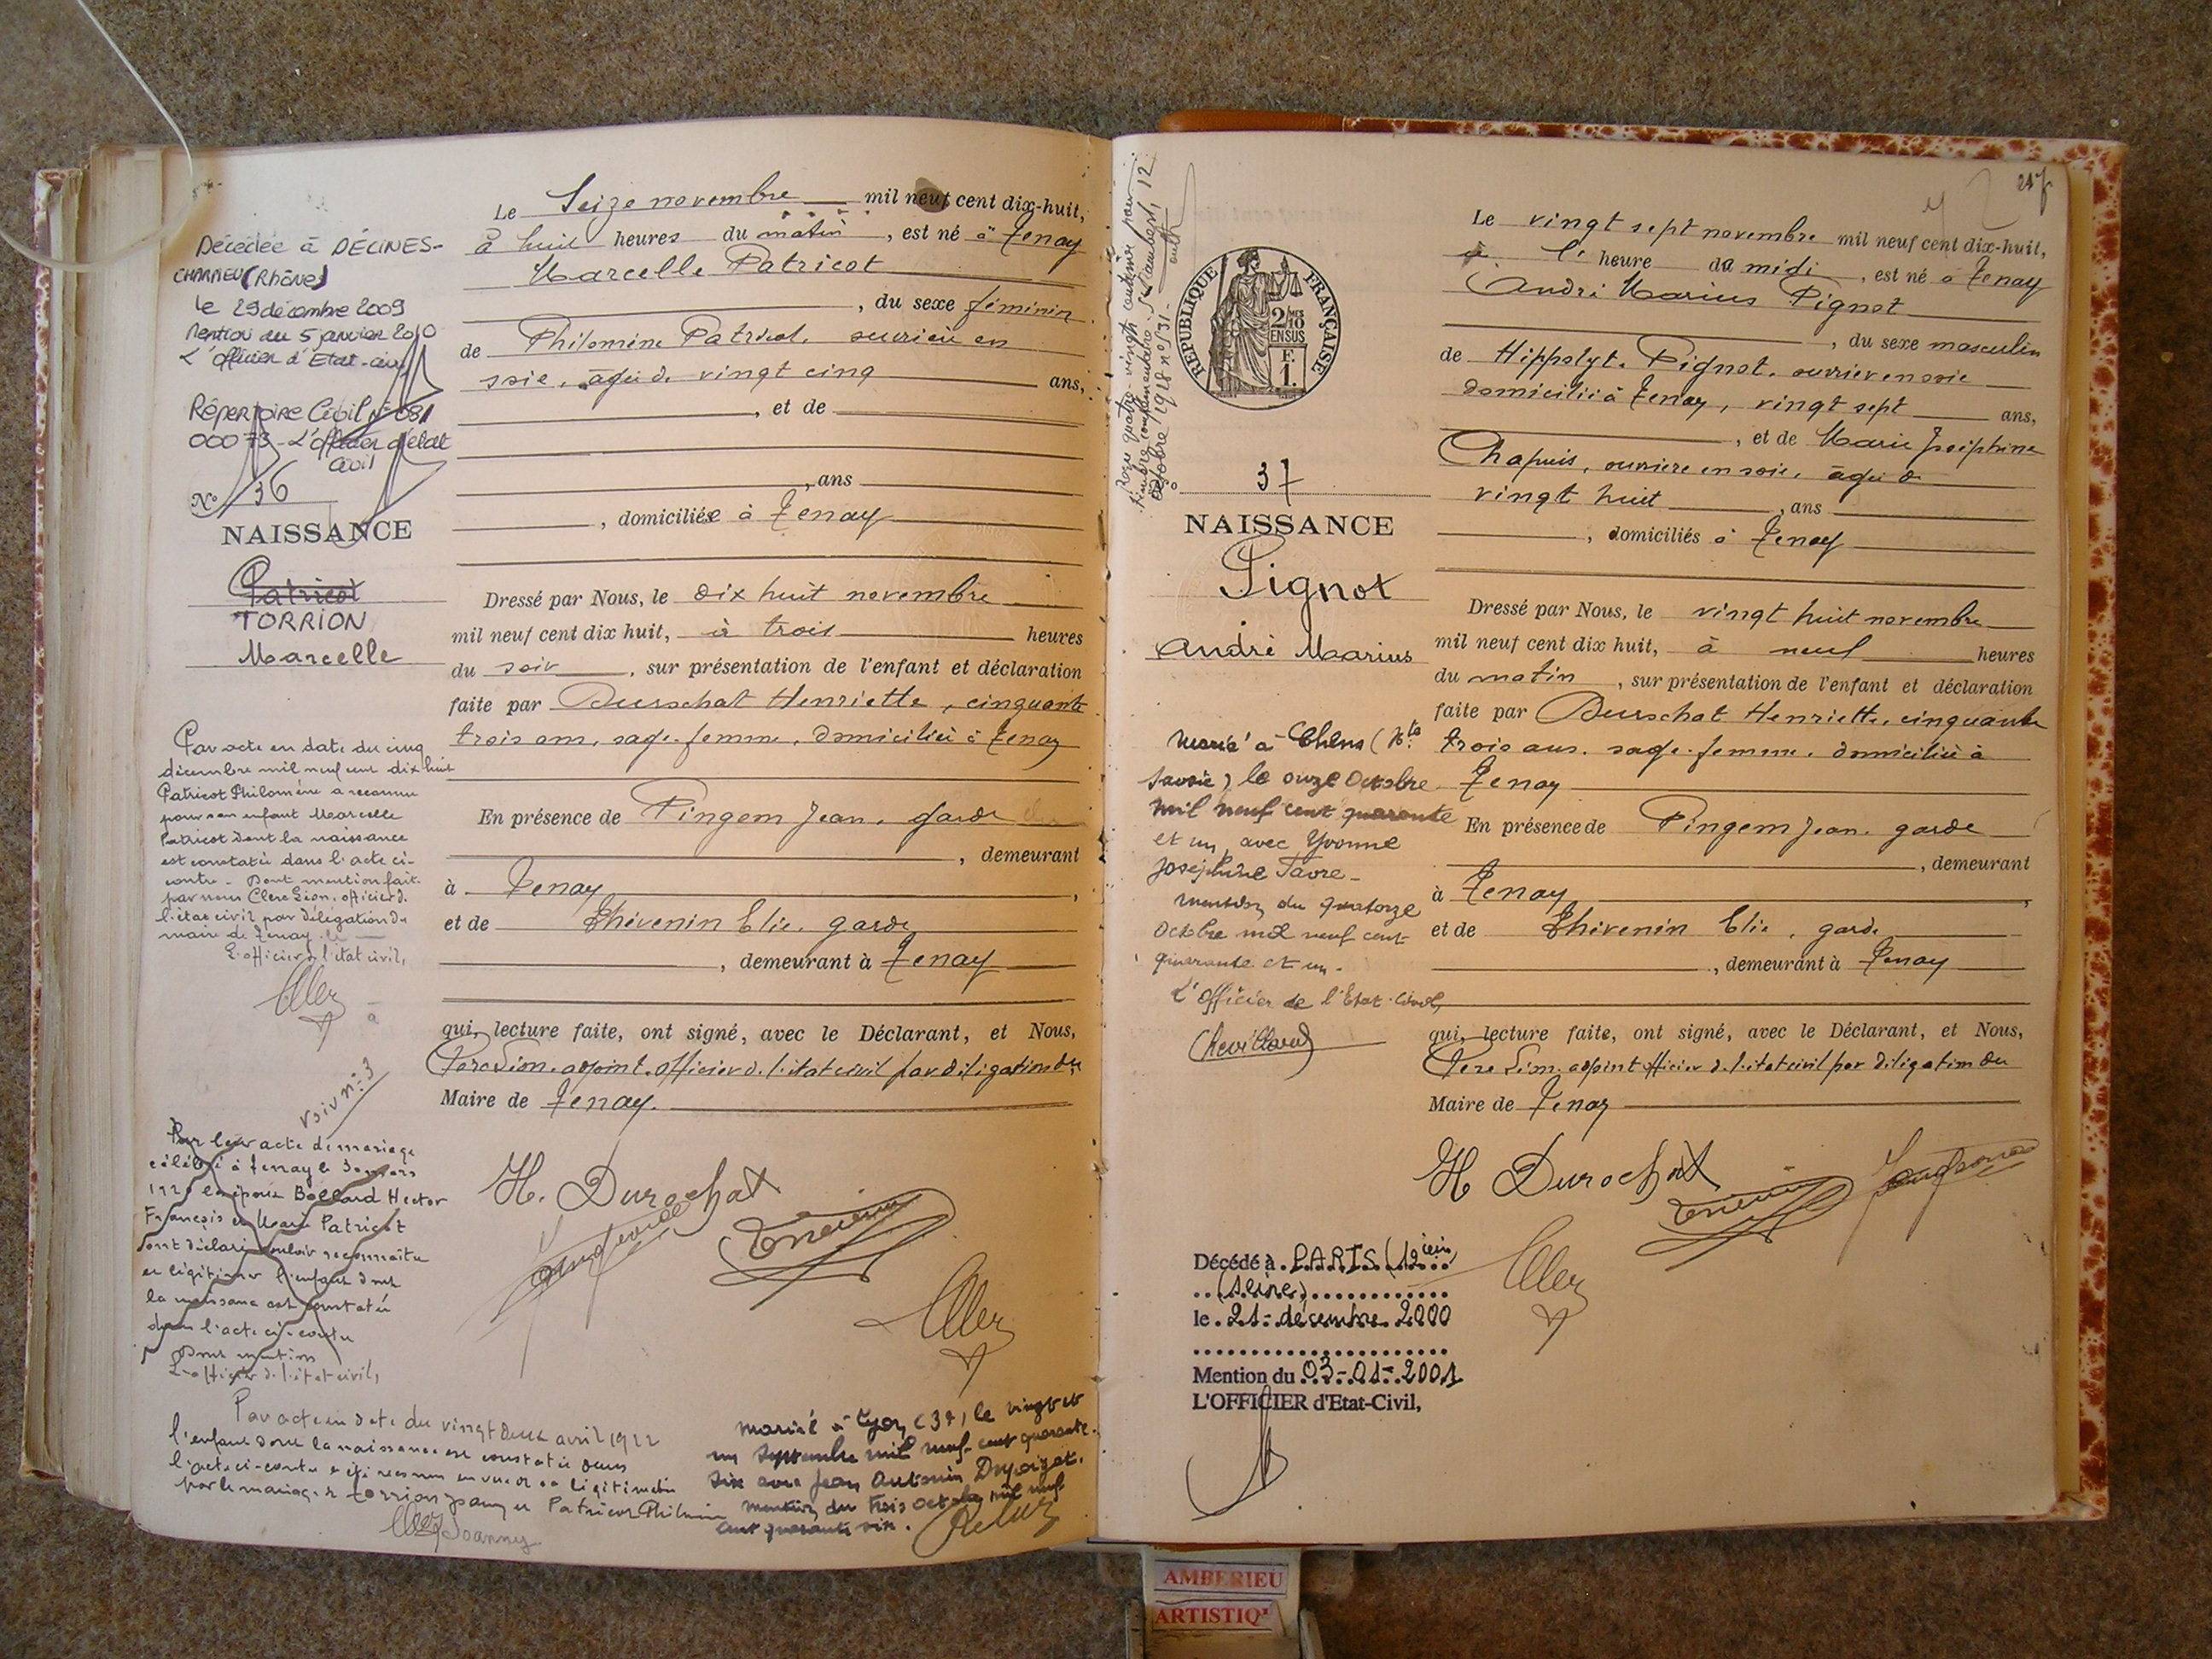 Décédée à DÉCINES-
CHARPIEU (Rhône)
le 29 décembre 2009
Mention du 5 janvier 2010
L'officier d'Etat-civil
Répertoire Civil N° 081
00073 - L'officier d'état
civil
N° 36
NAISSANCE
Patricot
TORRION
Marcelle
Par acte en date du cinq
décembre mil neuf cent dix huit
Patricot Philomène a reconnu
pour son enfant Marcelle
Patricot dont la naissance
est constatée dans l'acte ci-
contre - Dont mention faite
par nous Clerc Léon, officier de
l'état civil par délégation du
maire de Tenay
L'officier de l'état civil,
voir n° 3
Par leur acte de mariage
célébré à Tenay le 30 mars
les époux Hector
François et Marie Patricot
ont déclaré vouloir reconnaître
et légitimer l'enfant dont
la naissance est constatée
dans l'acte ci-contre
Dont mention
L'officier de l'état civil,
Par acte en date du vingt deux avril 1922
l'enfant dont la naissance est constatée dans
l'acte ci-contre a été reconnu en vue de sa légitimation
par le mariage de Torrion Joanny et Patricot Philomène
Joanny
Le Seize novembre mil neuf cent dix-huit,
à huit heures du matin, est né à Tenay
Marcelle Patricot
, du sexe féminin
de Philomène Patricot, ouvrière en
soie, âgée de vingt cinq ans,
, et de
, ans
, domiciliée à Tenay
Dressé par Nous, le dix huit novembre
mil neuf cent dix huit, à trois heures
du soir, sur présentation de l'enfant et déclaration
faite par Durochat Henriette, cinquante
trois ans, sage-femme, domiciliée à Tenay
En présence de Pingem Jean, garde
, demeurant
à Tenay,
et de Thévenin Elie, garde
, demeurant à Tenay
qui, lecture faite, ont signé, avec le Déclarant, et Nous,
Clerc Léon, adjoint, officier de l'état civil par délégation du
Maire de Tenay.
H. Durochat
Marié à Lyon (3e) le vingt et
un septembre mil neuf cent quarante
six avec Jean Antonin
Mention du trois octobre mil neuf
cent quarante six.
247
12
octobre 1928 n° 131
RÉPUBLIQUE FRANÇAISE
2/10 EN SUS
F. 1.
N° 37
NAISSANCE
Pignot
André Marius
Marié à Chens (Hte
Savoie) le onze Octobre
mil neuf cent quarante
et un, avec Yvonne
Joséphine Favre -
Mention du quatorze
Octobre mil neuf cent
quarante et un.
L'Officier de l'Etat-Civil,
Chevillard
Le vingt sept novembre mil neuf cent dix-huit,
à 1 heure du midi, est né à Tenay
André Marius Pignot
, du sexe masculin
de Hippolyte Pignot, ouvrier en soie
domicilié à Tenay, vingt sept ans,
, et de Marie Joséphine
Chapuis, ouvrière en soie, âgée de
vingt huit, ans
, domiciliés à Tenay
Dressé par Nous, le vingt huit novembre
mil neuf cent dix huit, à neuf heures
du matin, sur présentation de l'enfant et déclaration
faite par Durochat Henriette, cinquante
trois ans, sage-femme, domiciliée à
Tenay
En présence de Pingem Jean, garde
, demeurant
à Tenay,
et de Thévenin Elie, garde
, demeurant à Tenay
qui, lecture faite, ont signé, avec le Déclarant, et Nous,
Clerc Léon, adjoint officier de l'état civil par délégation du
Maire de Tenay
H Durochat
Décédé à PARIS (12ième)
(Seine)
le 21 décembre 2000
Mention du 03-01-2001
L'OFFICIER d'Etat-Civil,
AMBERIEU
ARTISTIQ'